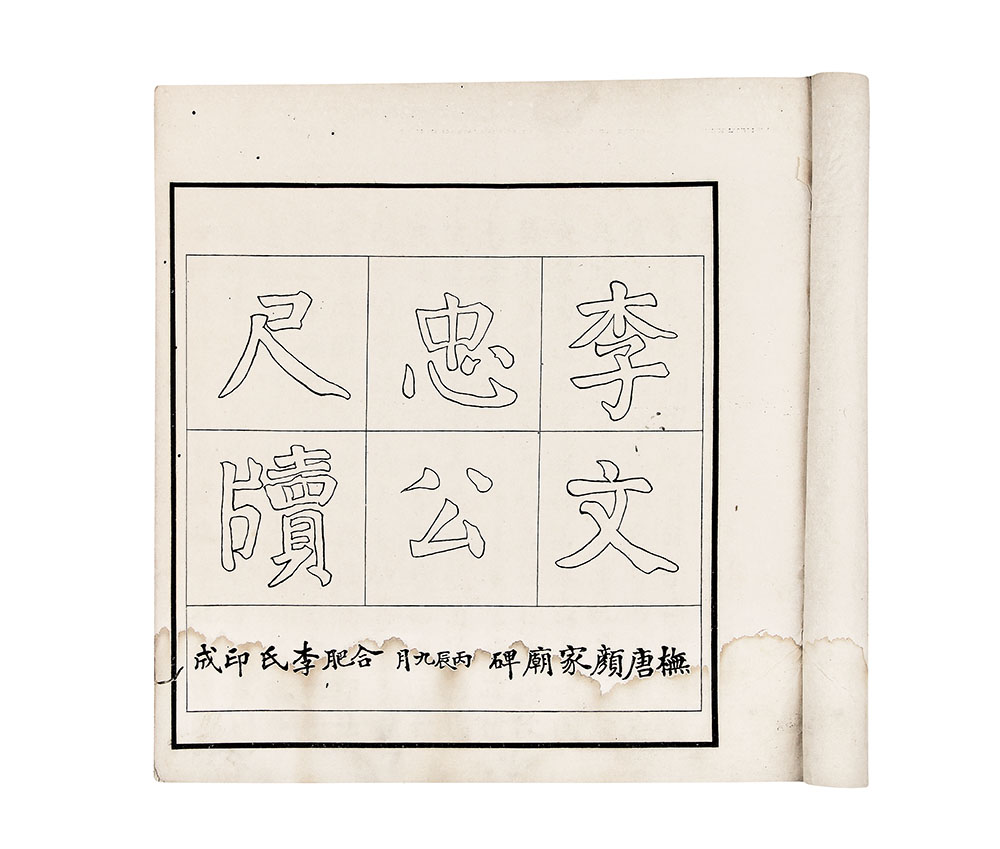 李文
忠公
尺牘
橅唐顏家廟碑 丙辰九月 合肥李氏印成